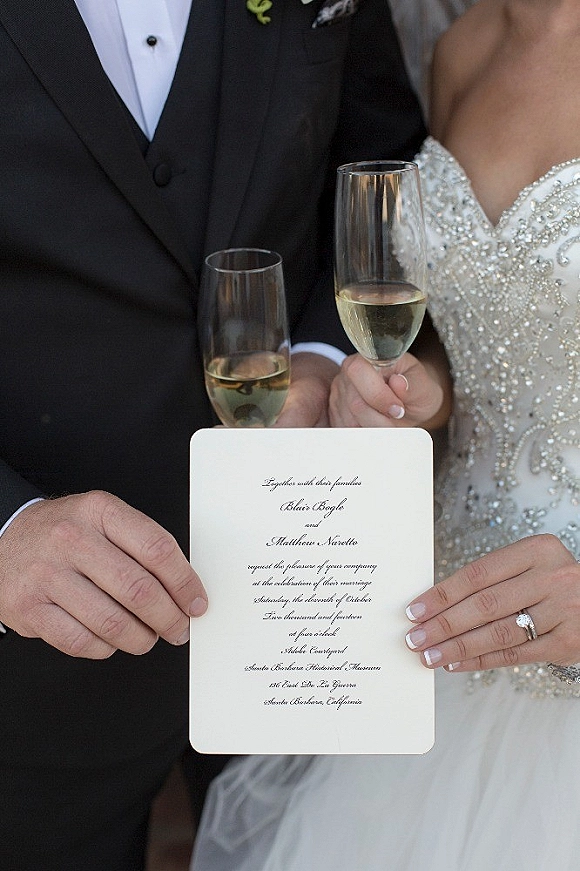 Together with their families
Blair Bogle
and
Matthew Naretto
request the pleasure of your company
at the celebration of their marriage
Saturday, the eleventh of October
Two thousand and fourteen
at four o'clock
Adobe Courtyard
Santa Barbara Historical Museum
136 East De La Guerra
Santa Barbara, California